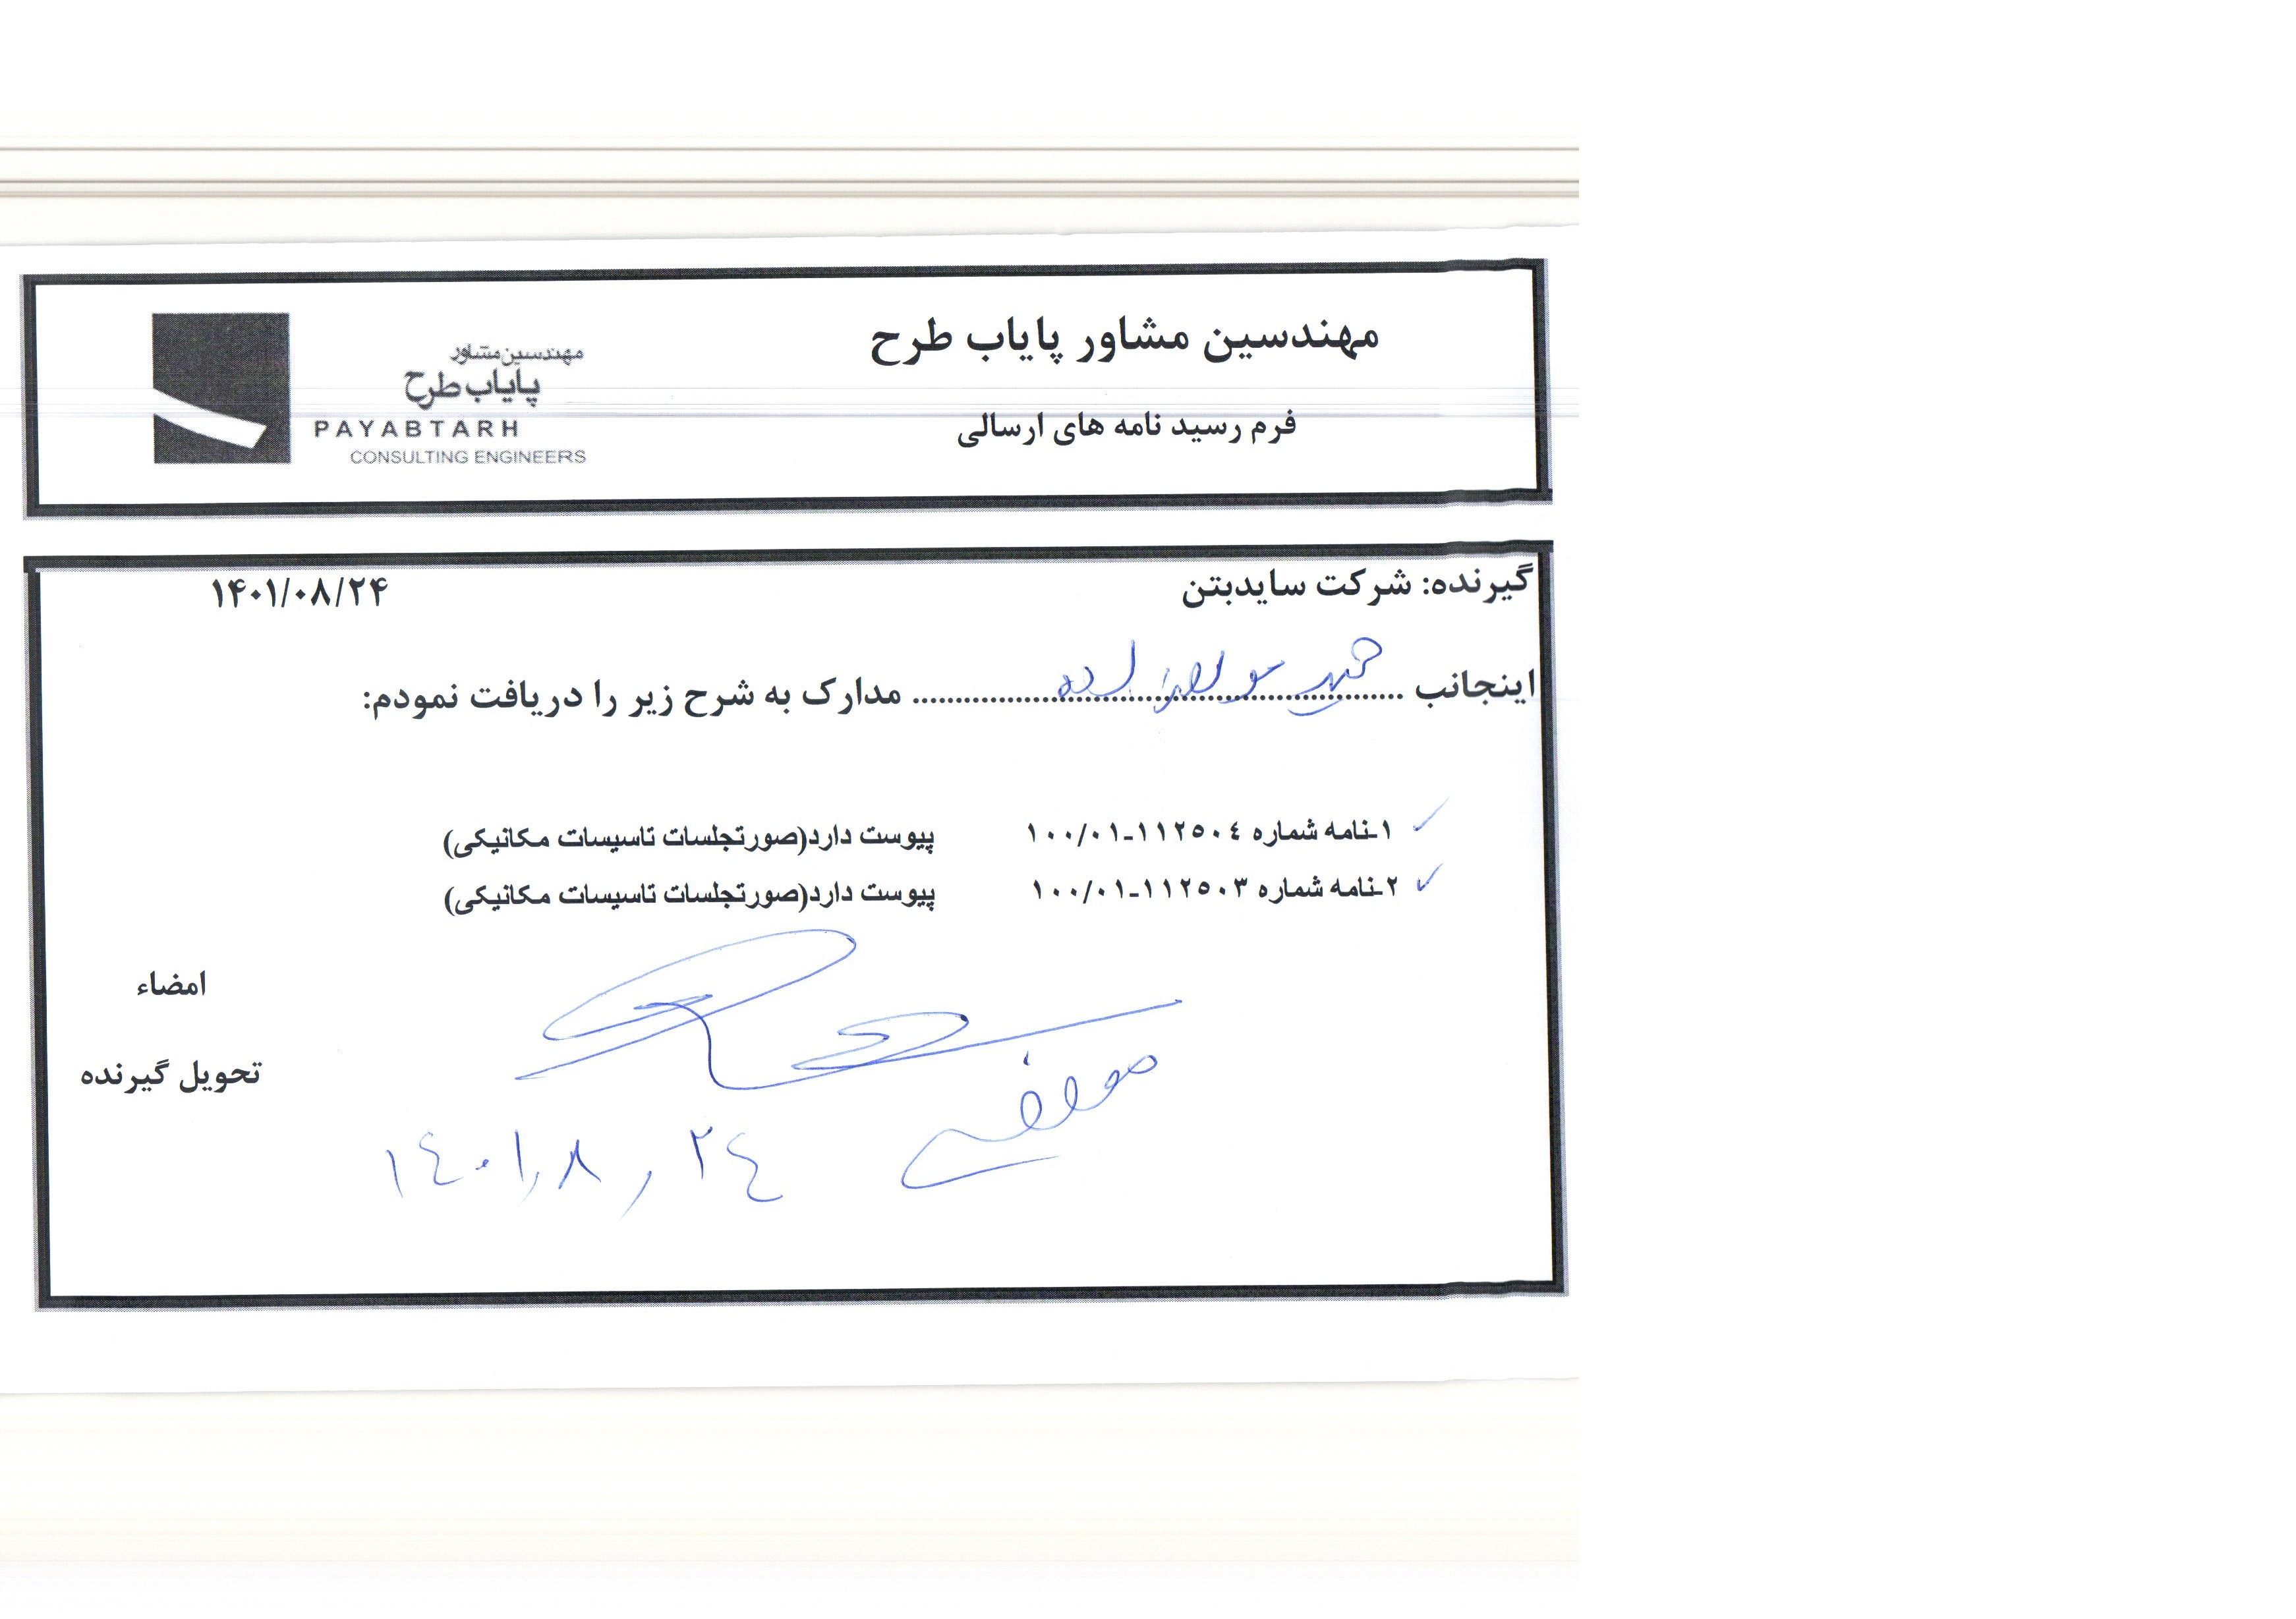 مهندسین مشاور پایاب طرح
فرم رسید نامه های ارسالی
مهندسین مشاور
پایاب طرح
PAYABTARH
CONSULTING ENGINEERS
گیرنده: شرکت سایدبتن
۱۴۰۱/۰۸/۲۴
اینجانب ........................................ مدارک به شرح زیر را دریافت نمودم:
۱-نامه شماره ۱۱۲۵۰۴-۱۰۰/۰۱ پیوست دارد(صورتجلسات تاسیسات مکانیکی)
۲-نامه شماره ۱۱۲۵۰۳-۱۰۰/۰۱ پیوست دارد(صورتجلسات تاسیسات مکانیکی)
امضاء
تحویل گیرنده
۱۴۰۱,۸,۲۴